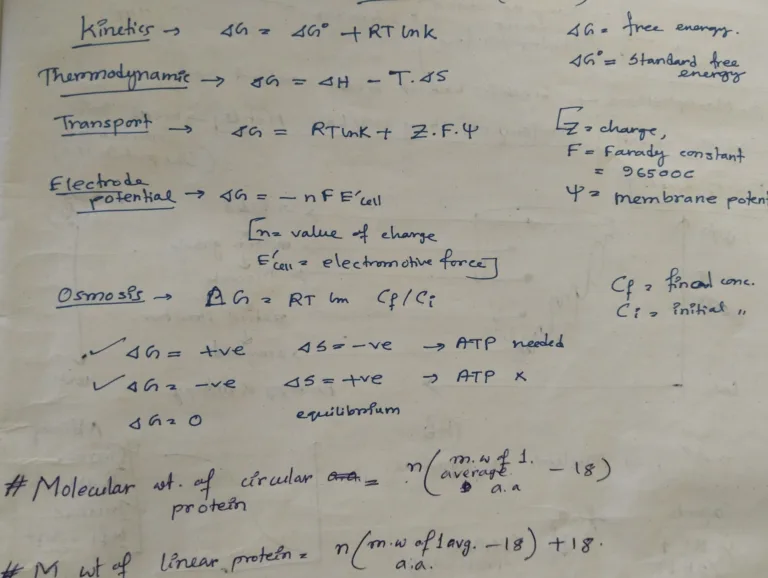 Kinetics → ΔG = ΔG° + RT lnk
ΔG = free energy.
ΔG° = Standard free energy
Thermodynamic → ΔG = ΔH - T.ΔS
Transport → ΔG = RT lnK + Z.F.Ψ
[Z = charge,
F = Farady constant
= 96500C
Ψ = membrane poten
Electrode potential → ΔG = - nFE'cell
[n= value of charge
E'cell = electromotive force]
Osmosis → ΔG = RT ln Cf/Ci
Cf = final conc.
Ci = initial "
✓ ΔG = +ve ΔS = -ve → ATP needed
✓ ΔG = -ve ΔS = +ve → ATP ×
ΔG = 0 equilibrium
# Molecular wt. of circular protein = n(m.w of 1. average a.a - 18)
# M wt of linear protein = n(m.w of 1 avg. a.a. - 18) + 18.